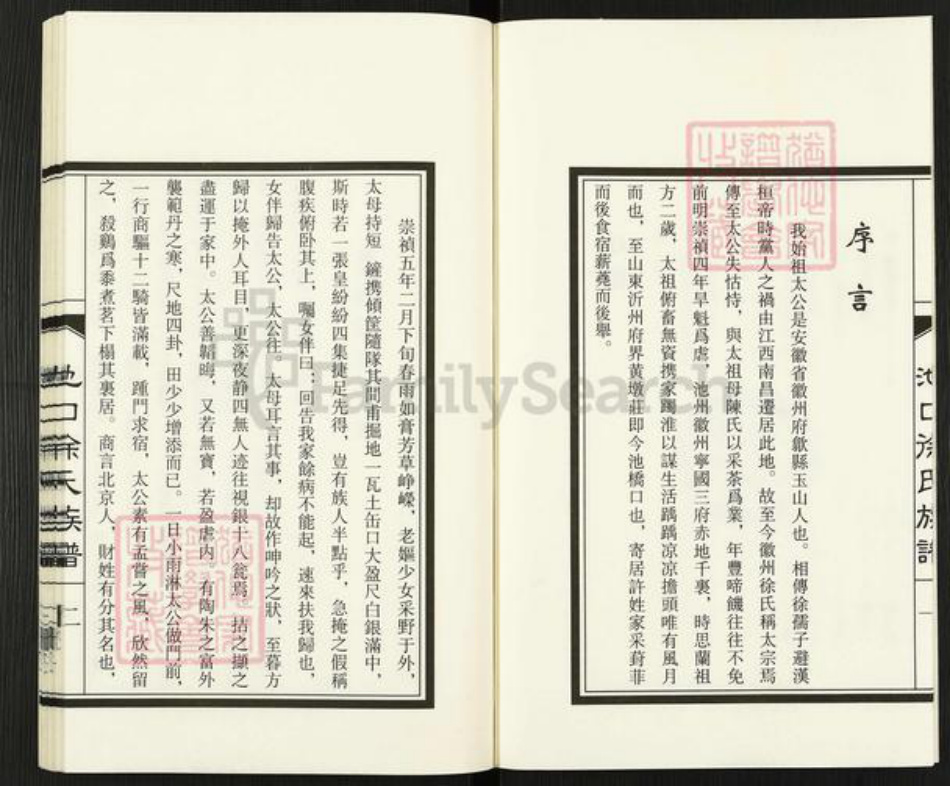 序言
我始祖太公是安徽省徽州府歙縣玉山人也。相傳徐孺子避漢
桓帝時黨人之禍由江西南昌遷居此地。故至今徽州徐氏稱太宗焉
傳至太公失怙恃，與太祖母陳氏以采茶爲業，年豐啼饑往往不免
前明崇禎四年旱魃爲虐，池州徽州寧國三府赤地千裏，時思蘭祖
方二歲，太祖俯畜無資携家躅淮以謀生活踽踽凉凉擔頭唯有風月
而也，至山東沂州府界黄墩莊即今池橋口也，寄居許姓家采葑菲
而後食宿薪蕘而後舉。
崇禎五年二月下旬春雨如膏芳草崢嶸，老嫗少女采野于外，
太母持短鑱携傾筐隨隊其間甫掘地一瓦土缶口大盈尺白銀滿中，
斯時若一張皇紛紛四集捷足先得，豈有族人半點乎，急掩之假稱
腹疾俯卧其上，囑女伴曰：回告我家餘病不能起，速來扶我歸也，
女伴歸告太公，太公往。太母耳言其事，却故作呻吟之狀，至暮方
歸以掩外人耳目，更深夜静四無人迹往視銀十八瓮焉，拮之擷之
盡運于家中。太公善韜晦，又若無寶，若盈虚内，有陶朱之富外
襲範丹之寒，尺地四卦，田少少增添而已。一日小雨淋太公做門前，
一行商驅十二騎皆滿載，踵門求宿，太公素有孟嘗之風，欣然留
之，殺鷄爲黍煮茗下榻其裏居。商言北京人，財姓有分其名也，
池口徐氏族譜
二
池口徐氏族譜
一
FamilySearch